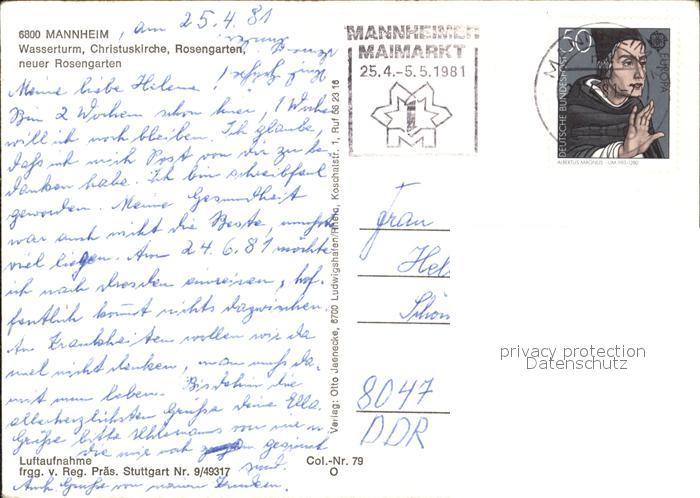 6800 MANNHEIM, am 25.4.81
Wasserturm, Christuskirche, Rosengarten,
neuer Rosengarten
Meine liebe Helene!
Bin 2 Wochen schon hier, 1 Woche
will ich noch bleiben. Ich glaube,
daß ich mich Post von dir zu be
danken habe. Ich bin schreibfaul
geworden. Meine Gesundheit
war auch nicht die Beste, mußte
viel liegen. Am 24.6.81 möchte
ich nach Dresden einreisen, hof-
fentlich kommt nichts dazwischen.
An Krankheiten wollen wir da
mal nicht denken, man muß da-
mit nun leben. Bis dahin die
allerherzlichsten Grüße deine Ella.
Grüße bitte von mir
die mir noch gesinnt
sind.
Auch Grüße von
Luftaufnahme
frgg. v. Reg. Präs. Stuttgart Nr. 9/49317
Col.-Nr. 79
O
Verlag: Otto Jaenecke, 6700 Ludwigshafen/Rhein, Koschatstr. 1, Ruf 56 23 16
MANNHEIMER
MAIMARKT
25.4.-5.5.1981
M
50
DEUTSCHE BUNDESPOST
EUROPA
ALBERTUS MAGNUS · UM 1193-1280
Frau
Hel
Schön
8047
DDR
privacy protection
Datenschutz